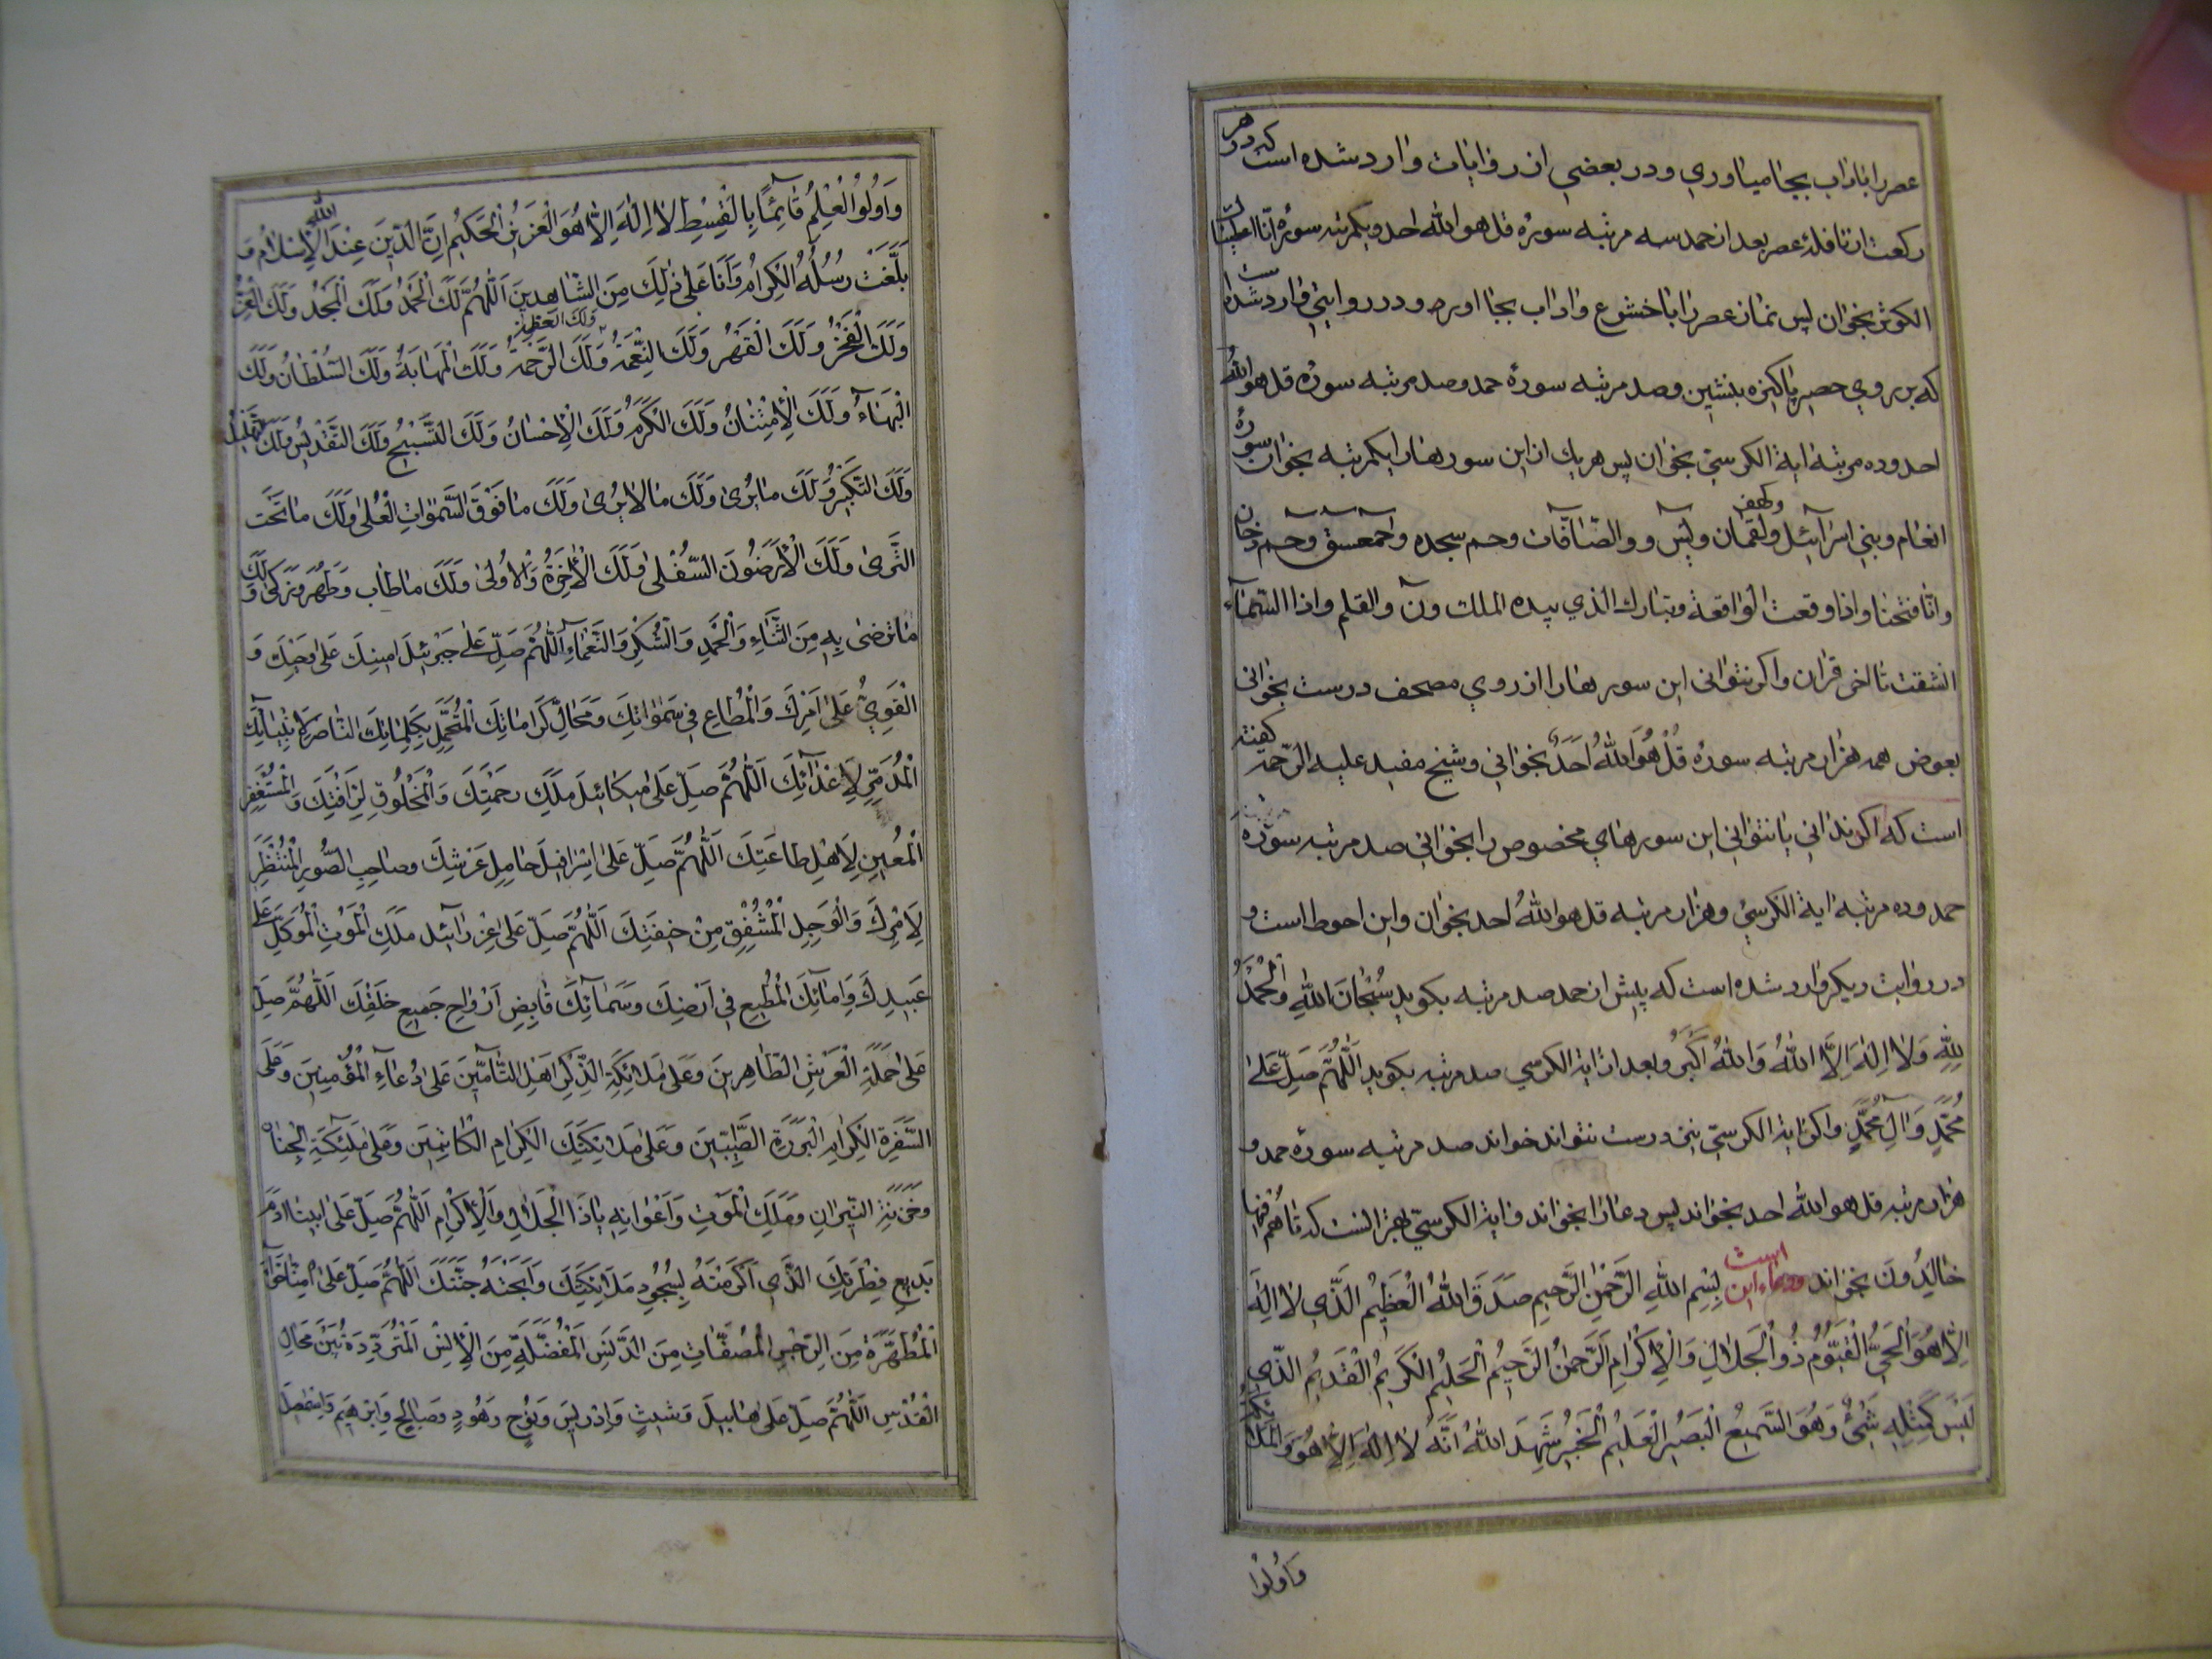 عصر را با داب بجا میاوری ودر بعضی از روایات وارد شده است که در هر
رکعت از نافلهٔ عصر بعد از حمد سه مرتبه سوره قل هو الله احد ویکمرتبه سوره انا اعطیناک
الکوثر بخوان پس نماز عصر را با خشوع واداب بجا اور ودر روایتی وارد شده است
که بر روی حصیر پاکیزه بنشین وصد مرتبه سورهٔ حمد وصد مرتبه سوره قل هو الله
احد وده مرتبه ایة الکرسی بخوان پس هر یک از این سورها را یکمرتبه بخوان سورهٔ
انعام وبنی اسرائیل وکهف ولقمان ویس و والصافات وحم سجده وحمعسق وحم دخان
وانا فتحنا واذا وقعت الواقعة وتبارک الذی بیده الملک ون والقلم واذا السماء
انشقت تا اخر قران واکر نتوانی این سورها را از روی مصحف درست بخوانی
بعوض همه هزار مرتبه سوره قُلْ هُوَ اللّٰهُ اَحَدٌ بخوانی وشیخ مفید علیه الرحمه کفته
است که اکر ندانی یا نتوانی این سورهای مخصوص را بخوانی صد مرتبه سوره
حمد وده مرتبه ایة الکرسی وهزار مرتبه قل هو اللهُ احد بخوان واین احوط است و
در روایت دیکر وارد شده است که پیش از حمد صد مرتبه بکوید سُبْحٰانَ اللّٰهِ وَالْحَمْدُ
لِلّٰهِ وَلاٰ اِلٰهَ اِلَّا اللّٰهُ وَاللّٰهُ اَکْبَرُ وبعد از ایة الکرسی صد مرتبه بکوید اَللّٰهُمَّ صَلِّ عَلیٰ
مُحَمَّدٍ وَاٰلِ مُحَمَّدٍ واکر ایة الکرسی نیز درست نتواند خواند صد مرتبه سوره حمد و
هزار مرتبه قل هو الله احد بخواند پس دعا را بخواند وایة الکرسی بهتر انست که تا هم فیها
خٰالِدُونَ بخواند ودعاء این است بِسْمِ اللّٰهِ الرَّحْمٰنِ الرَّحیمِ صَدَقَ اللّٰهُ الْعَظیمُ الَّذی لاٰ اِلٰهَ
اِلّاٰ هُوَ الْحَیُّ الْقَیُّومُ ذُو الْجَلاٰلِ وَالْاِکْرٰامِ الرَّحْمٰنُ الرَّحیمُ الْحَلیمُ الْکَریمُ الْقَدیمُ الَّذی
لَیْسَ کَمِثْلِهِ شَیْءٌ وَهُوَ السَّمیعُ الْبَصیرُ الْعَلیمُ الْخَبیرُ شَهِدَ اللّٰهُ اَنَّهُ لاٰ اِلٰهَ اِلّاٰ هُوَ وَالْمَلاٰئِکَةُ
وَاُولُوا
وَاُولُوا الْعِلْمِ قٰائِمًا بِالْقِسْطِ لاٰ اِلٰهَ اِلّاٰ هُوَ الْعَزیزُ الْحَکیمُ اِنَّ الدّینَ عِنْدَ اللّٰهِ الْاِسْلاٰمُ وَ
بَلَّغَتْ رُسُلُهُ الْکِرٰامُ وَاَنَا عَلیٰ ذٰلِکَ مِنَ الشّٰاهِدینَ اَللّٰهُمَّ لَکَ الْحَمْدُ وَلَکَ الْمَجْدُ وَلَکَ الْعِزُّ
وَلَکَ الْفَخْرُ وَلَکَ الْقَهْرُ وَلَکَ النِّعْمَةُ وَلَکَ الْعَظَمَةُ وَلَکَ الرَّحْمَةُ وَلَکَ الْمَهٰابَةُ وَلَکَ السُّلْطٰانُ وَلَکَ
الْبَهٰآءُ وَلَکَ الْاِمْتِنٰانُ وَلَکَ الْکَرَمُ وَلَکَ الْاِحْسٰانُ وَلَکَ التَّسْبیحُ وَلَکَ التَّقْدیسُ وَلَکَ التَّهْلیلُ
وَلَکَ التَّکْبیرُ وَلَکَ مٰا یُرٰی وَلَکَ مٰا لاٰ یُرٰی وَلَکَ مٰا فَوْقَ السَّمٰوٰاتِ الْعُلیٰ وَلَکَ مٰا تَحْتَ
الثَّریٰ وَلَکَ الْاَرَضُونَ السُّفْلیٰ وَلَکَ الْاٰخِرَةُ وَالْاُولیٰ وَلَکَ مٰا طٰابَ وَطَهُرَ وَزَکیٰ وَلَکَ
مٰا تَرْضیٰ بِهِ مِنَ الثَّنٰاءِ وَالْحَمْدِ وَالشُّکْرِ وَالنَّعْمٰاءِ اَللّٰهُمَّ صَلِّ عَلیٰ جَبْرَئیلَ اَمینِکَ عَلیٰ وَحْیِکَ وَ
الْقَوِیُّ عَلیٰ اَمْرِکَ وَالْمُطٰاعِ فی سَمٰوٰاتِکَ وَمَحٰالِّ کَرٰامٰاتِکَ الْمُتَحَمِّلِ بِکَلِمٰاتِکَ النّٰاصِرِ لِاَنْبِیٰآئِکَ
الْمُدَمِّرِ لِاَعْدٰآئِکَ اَللّٰهُمَّ صَلِّ عَلیٰ میکٰائیلَ مَلَکِ رَحْمَتِکَ وَالْمَخْلُوقِ لِرَأْفَتِکَ وَالْمُسْتَغْفِرِ
الْمُعینِ لِاَهْلِ طٰاعَتِکَ اَللّٰهُمَّ صَلِّ عَلیٰ اِسْرٰافیلَ حٰامِلِ عَرْشِکَ وَصٰاحِبِ الصُّورِ الْمُنْتَظِرِ
لِاَمْرِکَ وَالْوَجِلِ الْمُشْفِقِ مِنْ خیفَتِکَ اَللّٰهُمَّ صَلِّ عَلیٰ عِزْرٰآئیلَ مَلَکِ الْمَوْتِ الْمُوَکَّلِ عَلیٰ
عَبیدِکَ وَاِمٰآئِکَ الْمُطیعِ فی اَرْضِکَ وَسَمٰآئِکَ قٰابِضِ اَرْوٰاحِ جَمیعِ خَلْقِکَ اَللّٰهُمَّ صَلِّ
عَلیٰ حَمَلَةِ الْعَرْشِ الطّٰاهِرینَ وَعَلیٰ مَلاٰئِکَةِ الذِّکْرِ اَهْلِ التّٰأْمینِ عَلیٰ دُعٰآءِ الْمُؤْمِنینَ وَعَلَی
السَّفَرَةِ الْکِرٰامِ الْبَرَرَةِ الطَّیِّبینَ وَعَلیٰ مَلاٰئِکَتِکَ الْکِرٰامِ الْکٰاتِبینَ وَعَلیٰ مَلٰئِکَةِ الْجِنٰانِ
وَخَزَنَةِ النّیرٰانِ وَمَلَکِ الْمَوْتِ وَاَعْوٰانِهِ یٰا ذَا الْجَلاٰلِ وَالْاِکْرٰامِ اَللّٰهُمَّ صَلِّ عَلیٰ اَبینٰا اٰدَمَ
بَدیعِ فِطْرَتِکَ الَّذی اَکْرَمْتَهُ بِسُجُودِ مَلاٰئِکَتِکَ وَاَبَحْتَهُ جَنَّتَکَ اَللّٰهُمَّ صَلِّ عَلیٰ اُمِّنٰا حَوّٰآءَ
الْمُطَهَّرَةِ مِنَ الرِّجْسِ الْمُصَفّٰاتِ مِنَ الدَّنَسِ الْمُفَضَّلَةِ مِنَ الْاِنْسِ الْمُتَرَدِّدَةِ بَیْنَ مَحٰالِّ
الْقُدْسِ اَللّٰهُمَّ صَلِّ عَلیٰ هٰابیلَ وَشیثٍ وَاِدْریسَ وَنُوحٍ وَهُودٍ وَصٰالِحٍ وَاِبْرٰهیمَ وَاِسْمٰعیلَ